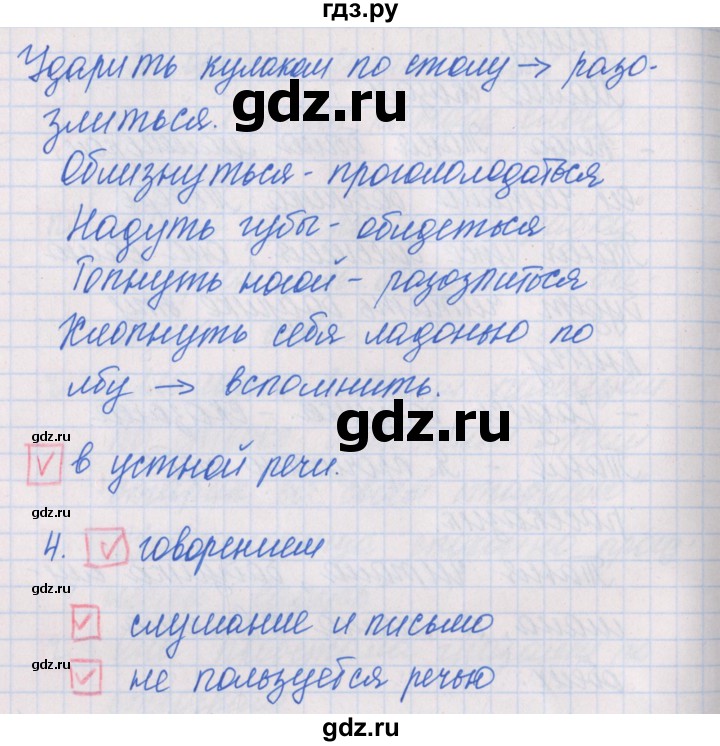 гдз.ру
Ударить кулаком по столу → разо-
злиться.
gdz.ru
Облизнуться - проголодаться
Надуть губы - обидеться
Топнуть ногой - разозлиться
Хлопнуть себя ладонью по
лбу → вспомнить.
gdz.ru
gdz.ru
в устной речи.
gdz.ru
4. говорением
gdz.ru
слушание и письмо
gdz.ru
не пользуется речью
gdz.ru